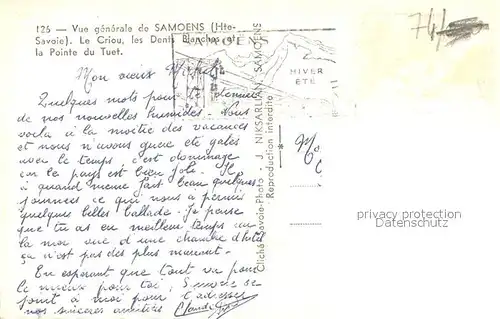 125 — Vue générale de SAMOENS (Hte-
Savoie). Le Criou, les Dents Blanches et
la Pointe du Tuet.
74
HIVER
ÉTÉ
Mon vieux Michel
Quelques mots pour te donner
de nos nouvelles humides. Nous
voila à la moitié des vacances
et nous n'avons guère été gatés
avec le temps, c'est dommage
car le pays est bien joli. Il
a quand même fait beau quelques
journées ce qui nous a permis
quelques belles ballade. Je pense
que tu as un meilleur temps car
la moi vue d'une chambre d'hôtel
ça n'est pas des plus marrant.
En espérant que tout va pour
le mieux pour toi, Simone se
joint à moi pour t'adresser
nos sincères amitiés Claude
Cliché Savoie-Photo - J. NIKSARLIAN, SAMOENS
Reproduction interdite
privacy protection
Datenschutz